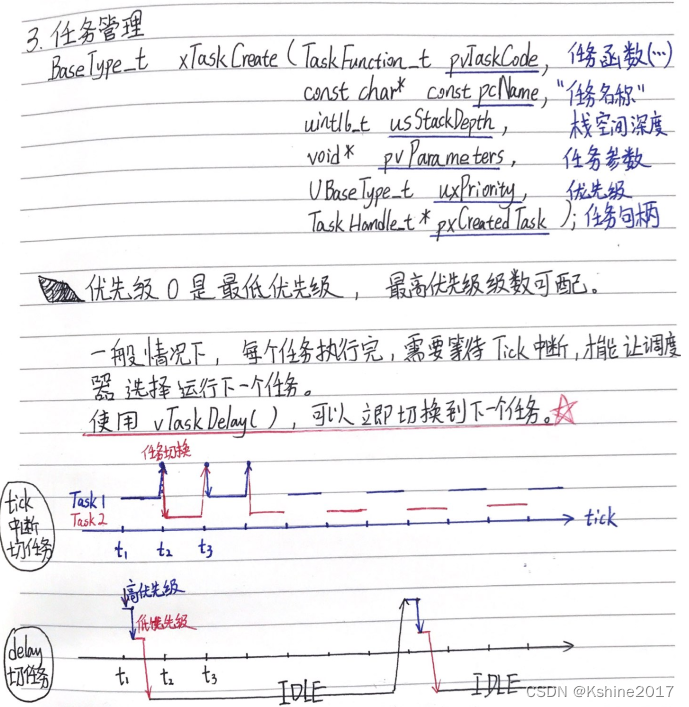 3. 任务管理
BaseType_t xTaskCreate ( TaskFunction_t pvTaskCode, 任务函数(…)
const char* const pcName, "任务名称"
uint16_t usStackDepth, 栈空间深度
void* pvParameters, 任务参数
UBaseType_t uxPriority, 优先级
TaskHandle_t* pxCreatedTask ); 任务句柄
优先级 0 是最低优先级, 最高优先级级数可配。
一般情况下, 每个任务执行完, 需要等待 Tick 中断, 才能让调度
器选择运行下一个任务。
使用 vTaskDelay( ), 可以立即切换到下一个任务。☆
任务切换
tick
中断
切任务
Task1
Task2
tick
t1 t2 t3
高优先级
低优先级
delay
切任务
t1 t2 t3
IDLE IDLE
CSDN @Kshine2017